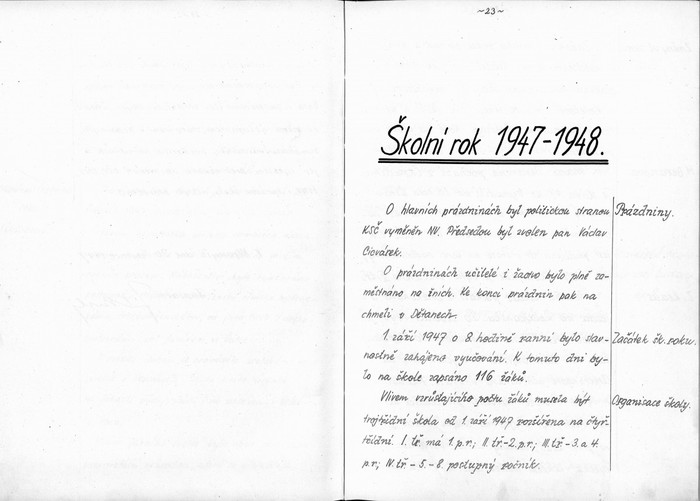 ~23~
Školní rok 1947-1948.
O hlavních prázdninách byl politickou stranou
KSČ vyměněn NV. Předsedou byl zvolen pan Václav
Prázdniny.
O prázdninách učitelé i žactvo bylo plně za-
městnáno na žních. Ke konci prázdnin pak na
chmeli v Dětanech.
1. září 1947 o 8. hodině ranní bylo slav-
nostně zahájeno vyučování. K tomuto dni by-
lo na škole zapsáno 116 žáků.
Začátek šk. roku.
Vlivem vzrůstajícího počtu žáků musela být
trojtřídní škola od 1. září 1947 rozšířena na čtyř-
třídní. I. tř. má 1. p.r.; II. tř.-2. p.r.; III. tř.-3. a 4.
p.r; IV. tř - 5.-8. postupný ročník.
Organisace školy.